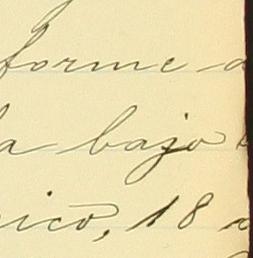 forme a
a bajo
ico, 18